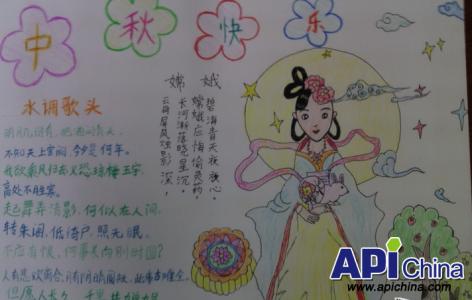 中秋快乐
水调歌头
明月几时有,把酒问青天。
不知天上宫阙,今夕是何年。
我欲乘风归去又恐琼楼玉宇
高处不胜寒。
起舞弄清影,何似在人间。
转朱阁,低绮户,照无眠。
不应有恨,何事长向别时圆?
人有悲欢离合,月有阴晴圆缺,此事古难全。
但愿人长久,千里共婵娟
嫦娥
云母屏风烛影深,
长河渐落晓星沉。
嫦娥应悔偷灵药
碧海青天夜夜心。
API China
www.apichina.com